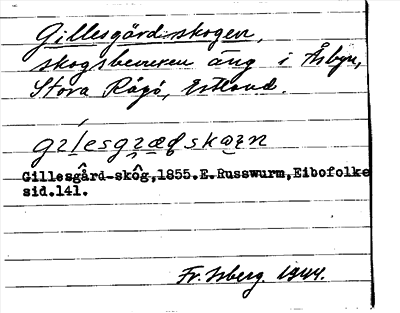 Gillesgård-skogen,
skogsbeväxen äng i Åsbyn,
Stora Rågö, Estland.
Gillesgård-skôg, 1855.E.Russwurm,Eibofolke
sid.141.
Fr. Isberg. 1944.